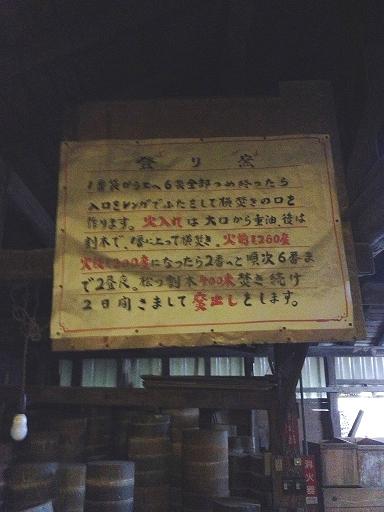 登り窯
1番袋から上へ6袋全部つめ終ったら
入口をレンガでふたをして横焚きの口を
作ります。火入れは大口から重油 後は
割木で、1番に上って横焚き。火前1260度
火後1200度になったら2番へと順次6番ま
で2昼夜。松の割木400束焚き続け
2日間さまして窯出しをします。
消火器